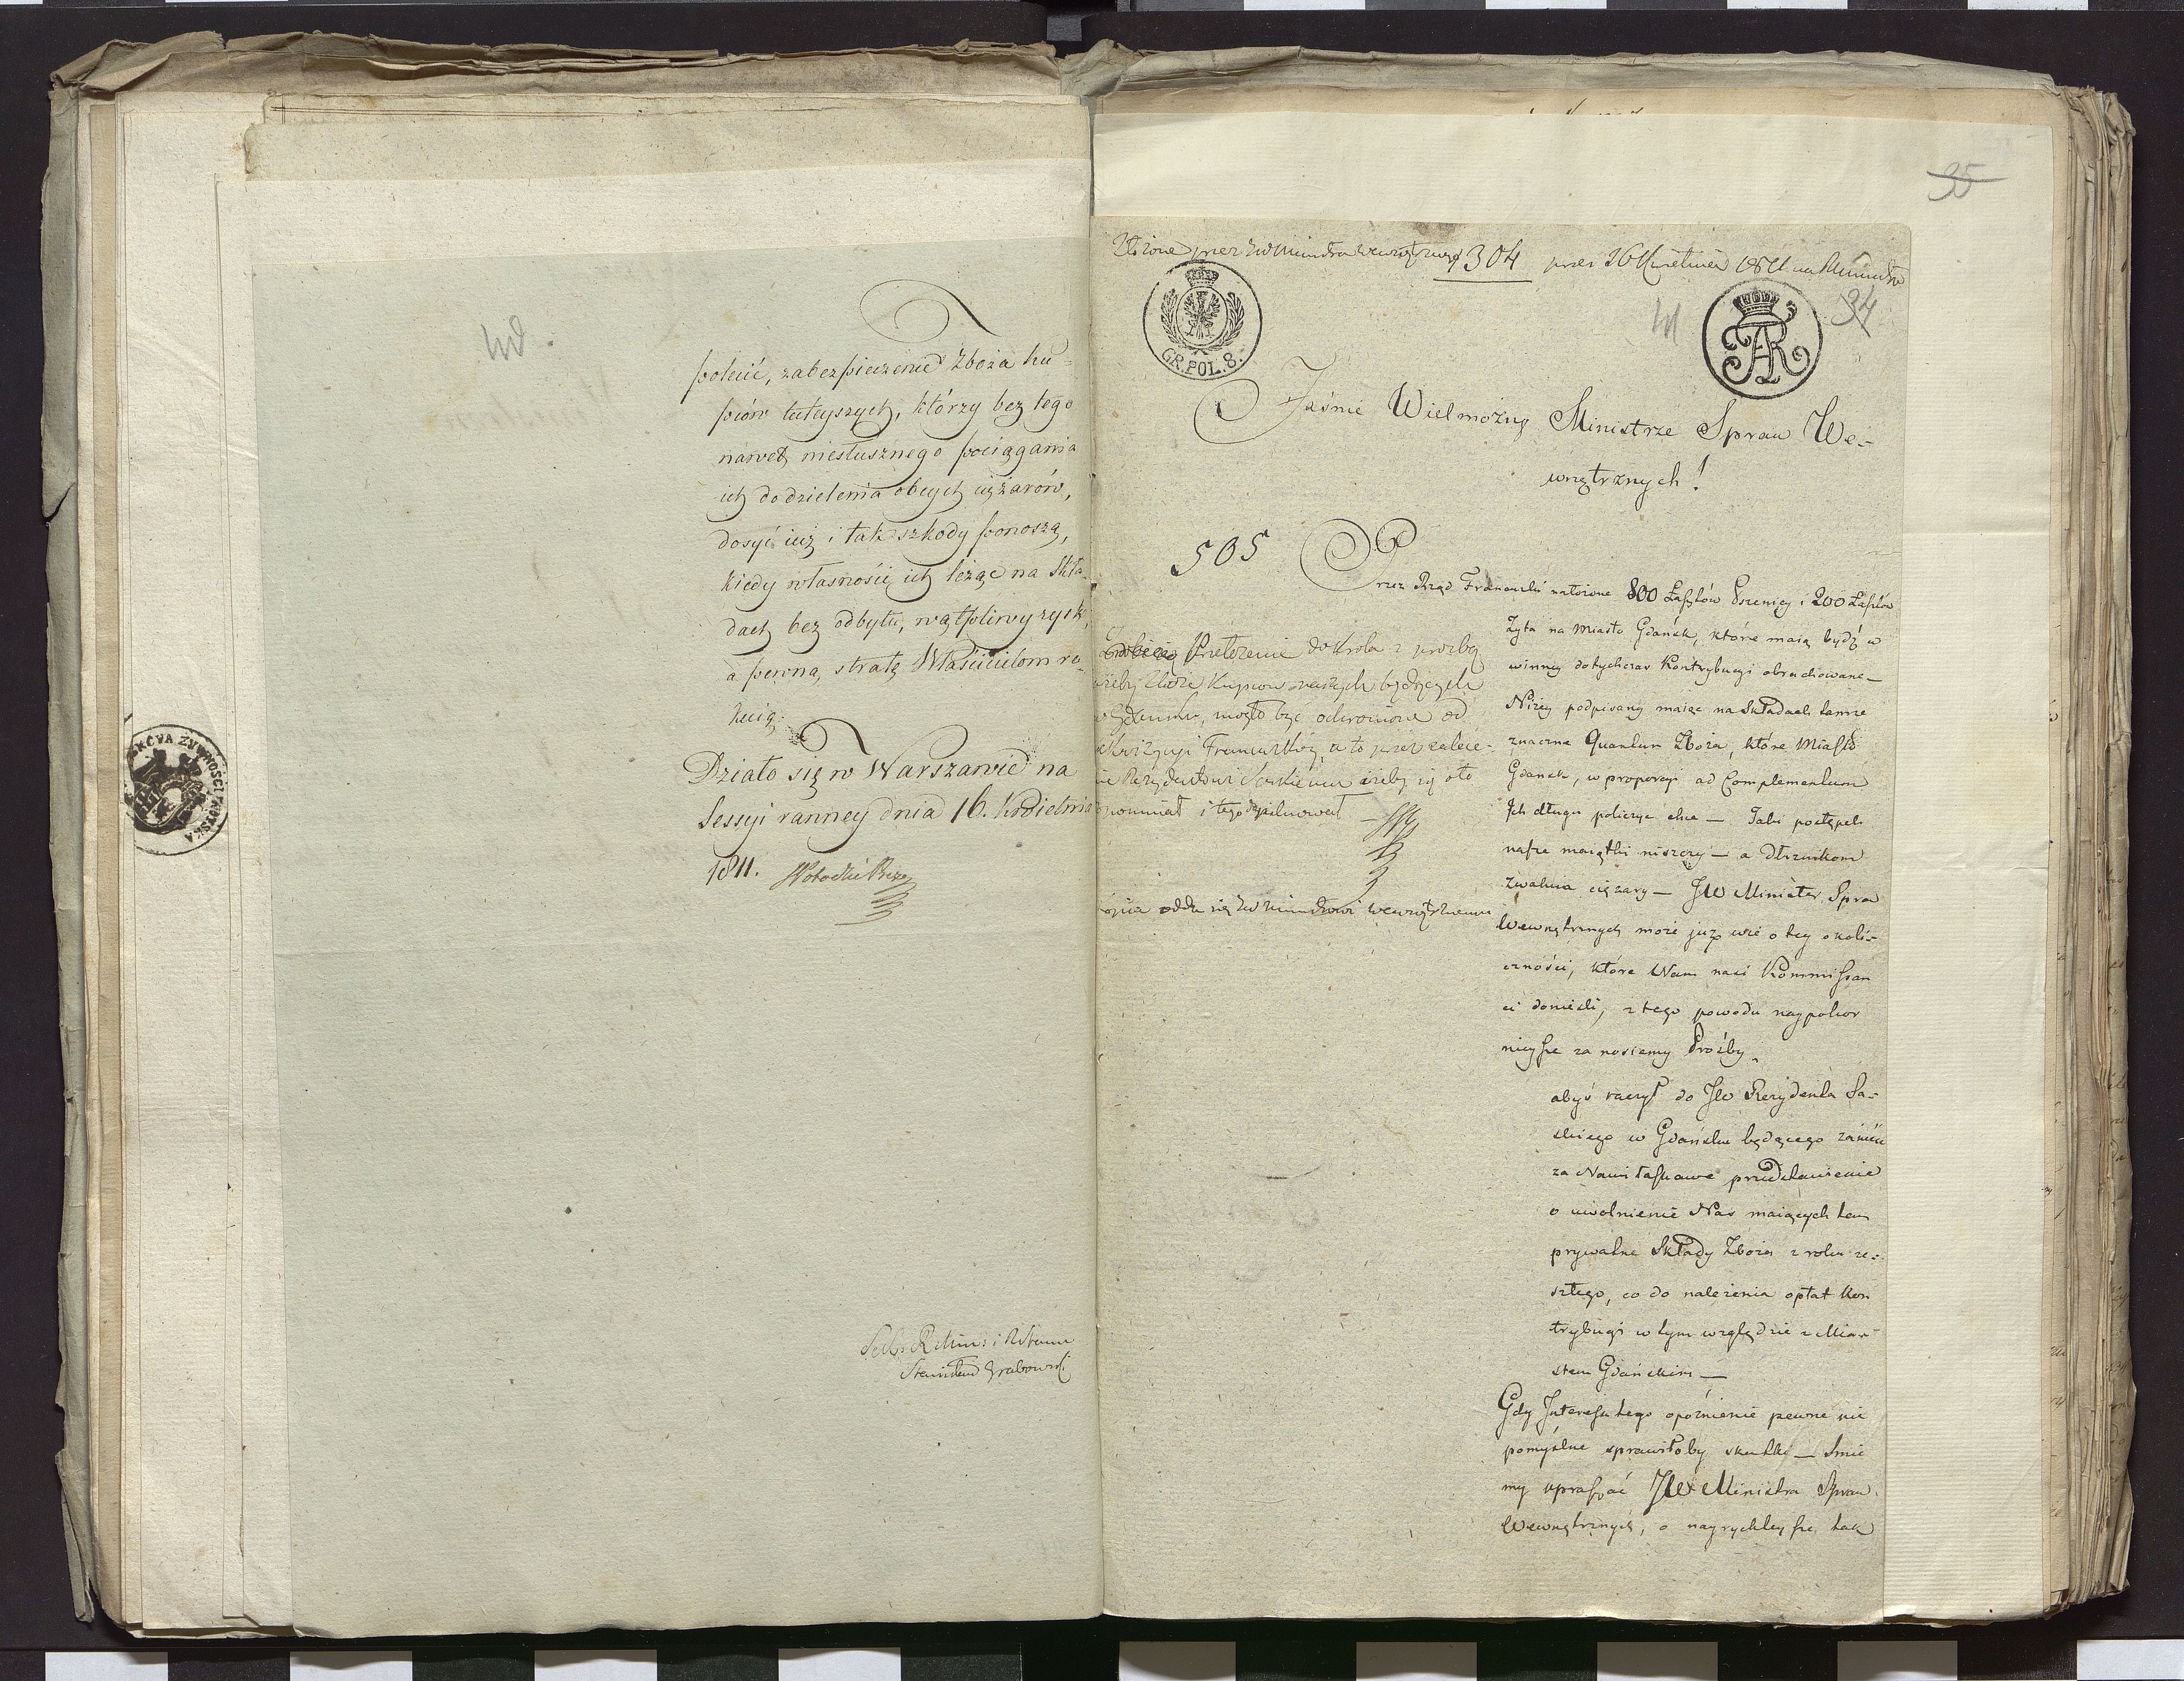 polecić, zabezpieczenie Zboża ku-
pców tuteyszych, którzy bez tego
nawet niesłusznego pociągania
ich do dzielenia obcych ciężarów,
dosyć iuż i tak szkody ponoszą,
kiedy własności ich leżąc na Skła-
dach bez odbytu, wątpliwy zysk,
a pewną stratę Właścicielom ro-
kuią.
Działo się w Warszawie na
Sessyi ranney dnia 16. Kwietnia
1811.
Stanisław Grabowski
35
przez JW Ministra wewnętrznego 304 16 Kwietnia 1811
34
GR. POL. 8.
Jaśnie Wielmożny Ministrze Spraw We-
wnętrznych!
505
Przez Rząd Francuzki nałożone 800 Łasztów Pszenicy i 200 Łasztów
Żyta na Miasto Gdańsk, które maią bydź w
winney dotychczas Kontrybucyi obrachowane —
Niżey podpisany maiąc na Składach tamże
znaczne Quantum Zboża, które Miasto
Gdansk, w proporcyi ad Complementum
Ich długu policzyć chce — Taki postępek
nasze maiątki niszczy — a Dłużnikom
zwalnia ciężary — JW Minister Spraw
Wewnętrznych może już wie o tey okoli-
czności, które Nam nasi Kommissan
ci donieśli, z tego powodu naypokor
nieysze za nosiemy Prośby,
abyś raczył do JW Rezydenta Sa-
skiego w Gdańsku będącego
za Nami łaskawe przedstawienie
o uwolnienie Nas maiących tam
prywatne Składy Zboża z roku ze-
szłego, co do należenia opłat Kon
trybucyi w tym względzie z Mia-
stem Gdańskim —
Gdy Interessu tego opoźnienie pewne nie
pomyślne sprawiłoby skutki — śmie
my upraszać JW Ministra Spraw
Wewnętrznych, o nayrychleysze, tak
Przełożenie do Króla z prozbą
żeby Zboże Kupców naszych będących
w Gdansku, mogło być ochronione od
Francuzkiey, a to przez zalece-
nie Rezydentowi Saskiemu żeby się o to
upomniał i tego dopilnował —
odda się JW Ministrowi wewnętrznemu